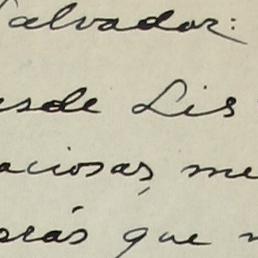 Salvador:
esde Lis
aciosas, me
erás que